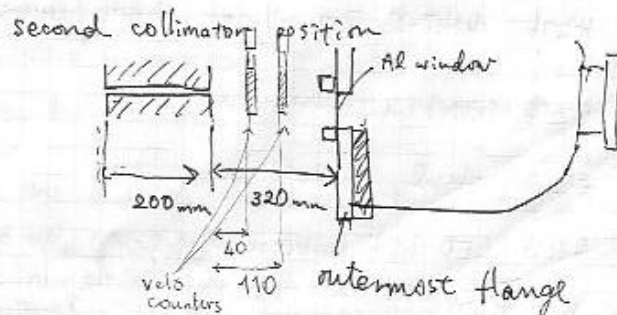 second collimator position
Al window
200mm
320mm
40
110
velo
counters
outermost flange